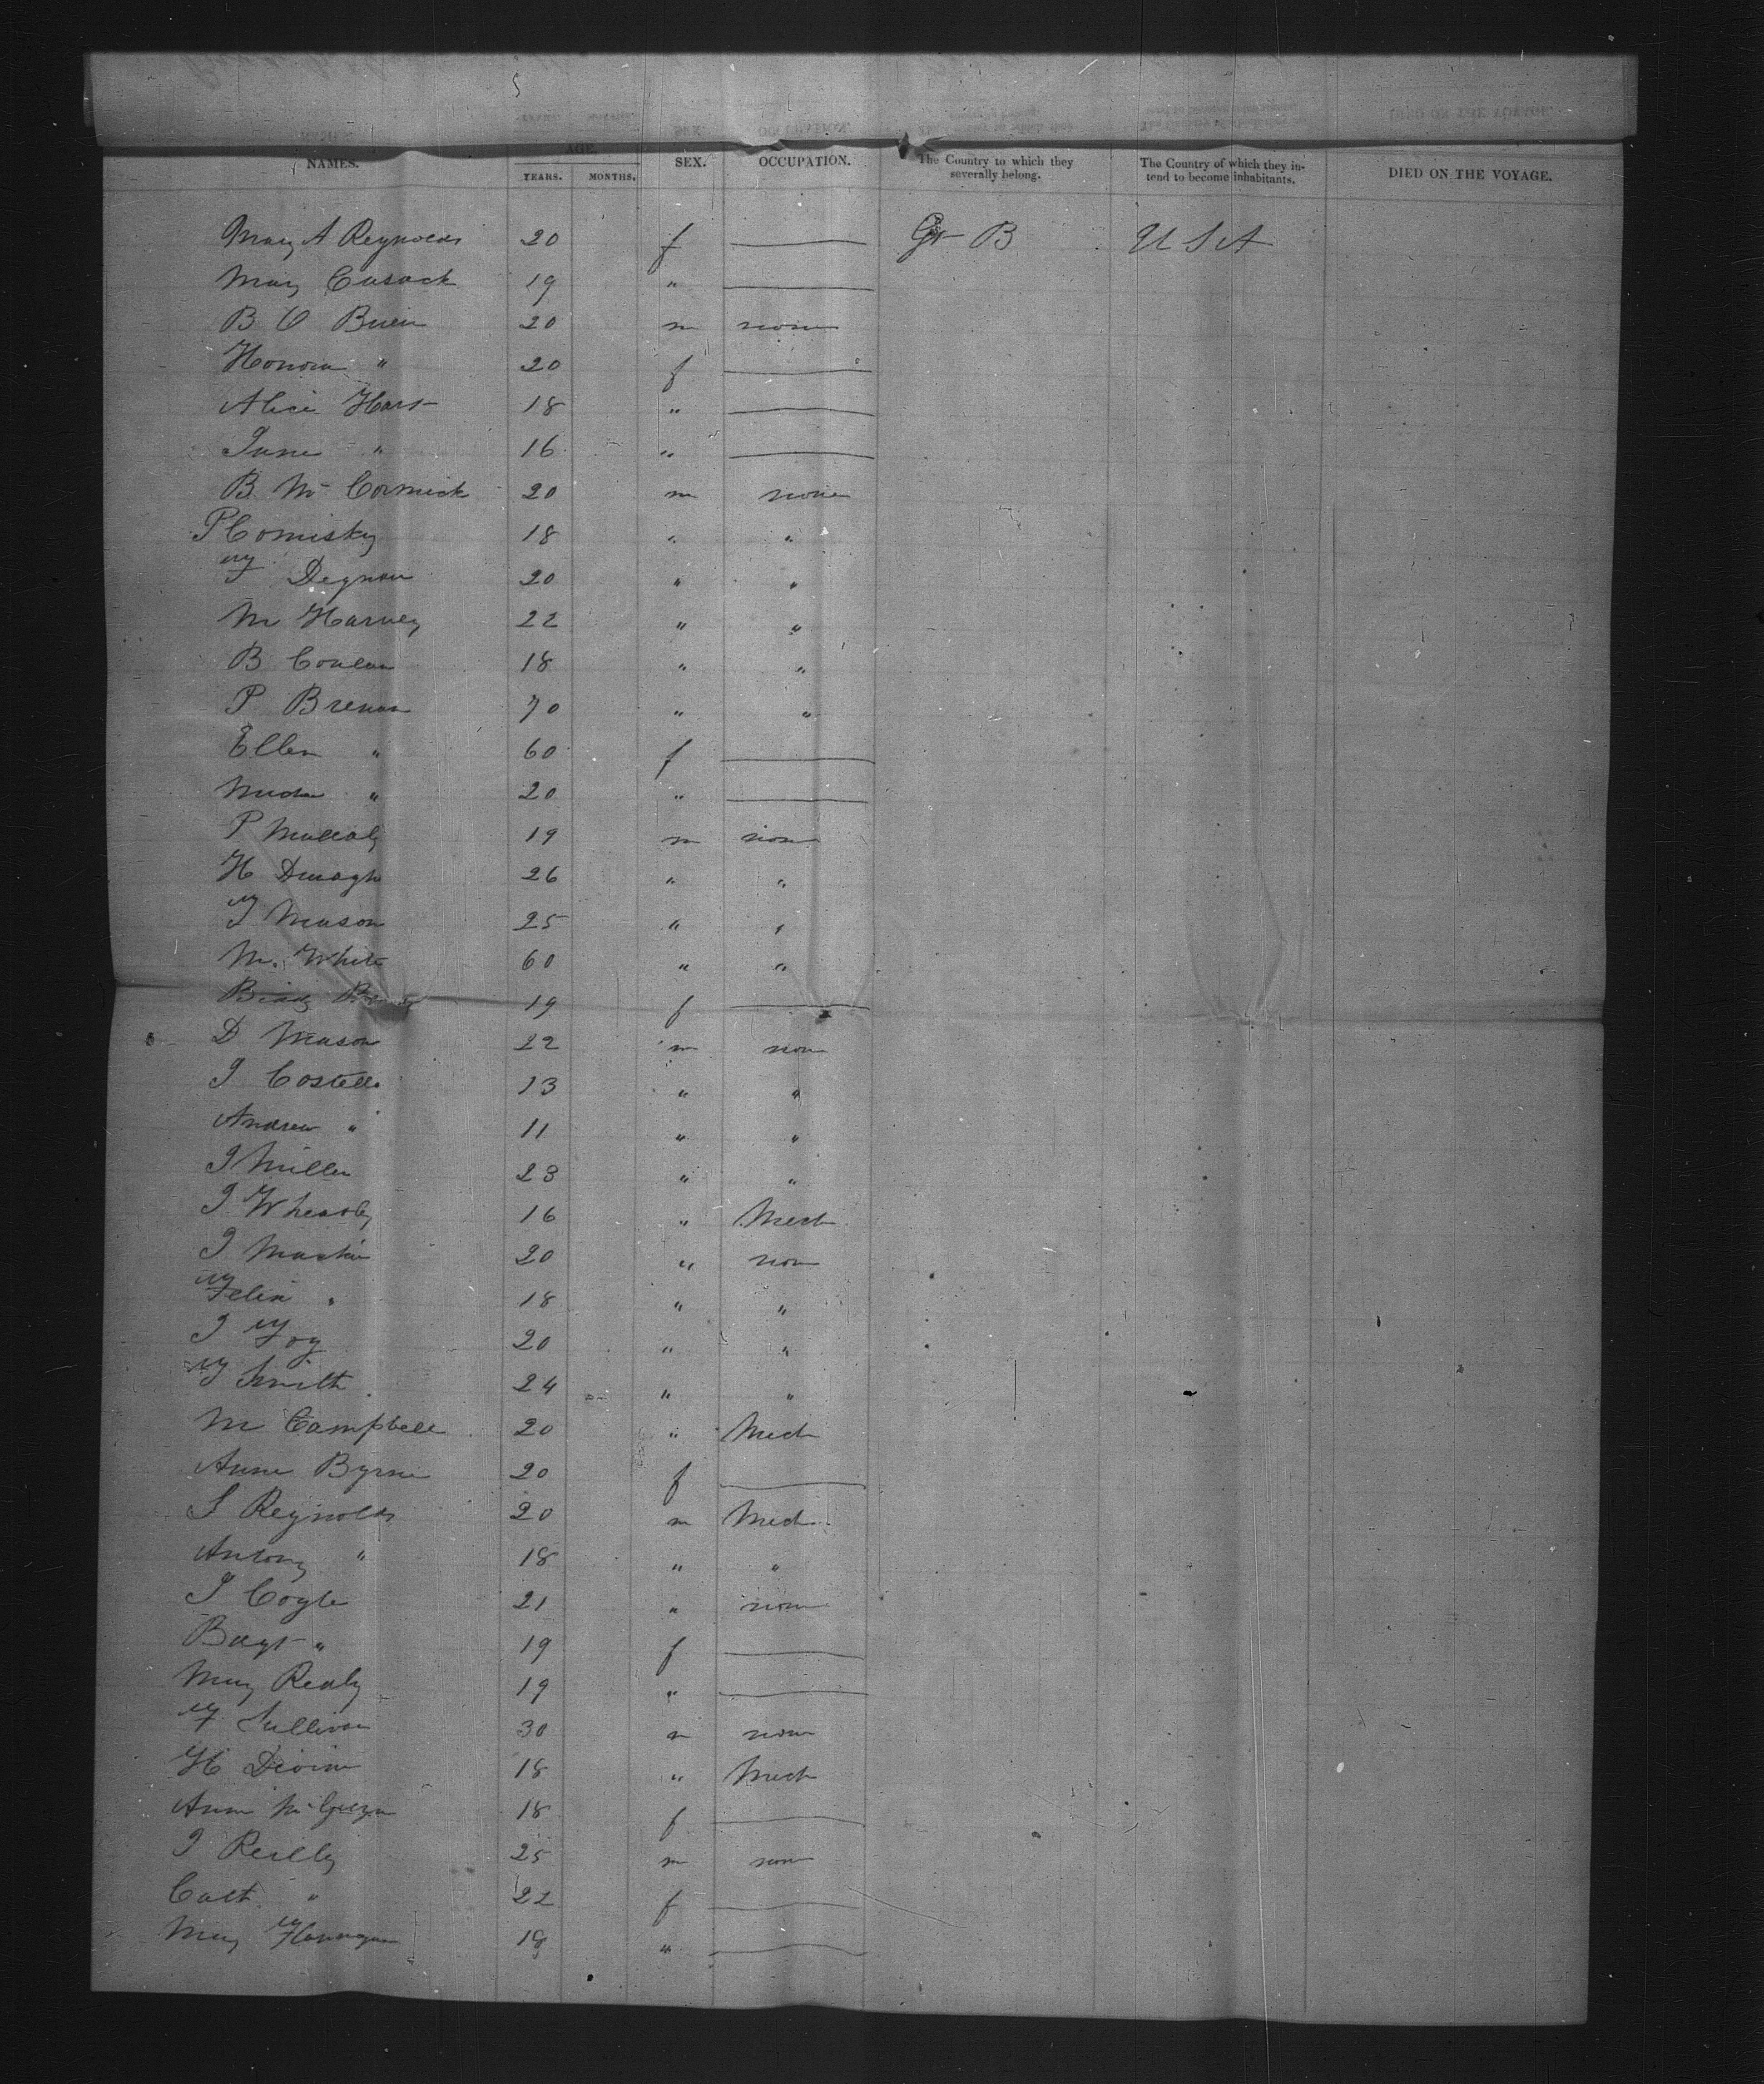 NAMES. AGE. YEARS. MONTHS. SEX. OCCUPATION. The Country to which they severally belong. The Country of which they intend to become inhabitants. DIED ON THE VOYAGE.
Mary A Reynolds 20 f Gt B U S A
Mary Cusack 19 "
B O Brien 20 m none
Honora " 20 f
Alice Hart 18 "
Jane " 16 "
B Mc Cormick 20 m none
P Comisky 18 " "
F Degnan 20 " "
M Harvey 22 " "
B Conlan 18 " "
P Brenan 70 " "
Ellen " 60 f
" 20 "
P Mullaly 19 m none
H 26 " "
T Mason 25 " "
M. White 60 " "
19 f
D Mason 22 m non
J Costello 13 " "
Andrew " 11 " "
J Miller 23 " "
J 16 " Mech
J Martin 20 " non
Felix " 18 " "
J Foy 20 " "
Smith 24 " "
M Campbell 20 " Mech
Anne Byrne 20 f
J Reynolds 20 m Mech
Antony " 18 " "
J Coyle 21 " none
" 19 f
Mary Realy 19 "
F Sullivan 30 m none
H Devine 18 " Mech
Anne 18 f
J Reilly 25 m none
Cath " 22 f
Mary 18 "